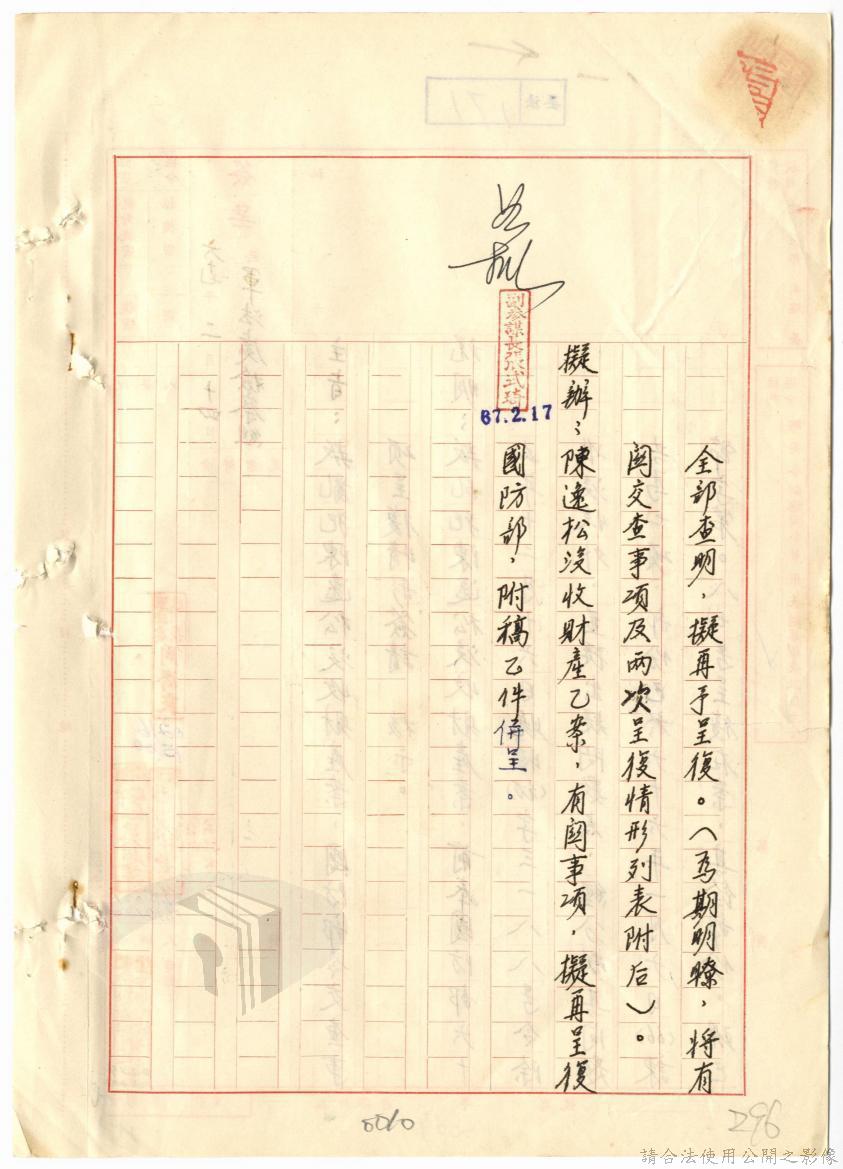 全部查明，擬再予呈復。（為期明瞭，將有
関交查事項及兩次呈復情形列表附后）。
擬辦：陳逸松沒收財產乙案，有関事項，擬再呈復
國防部，附稿乙件併呈。
如擬
副參謀長張式琦
67.2.17
0010
296
請合法使用公開之影像